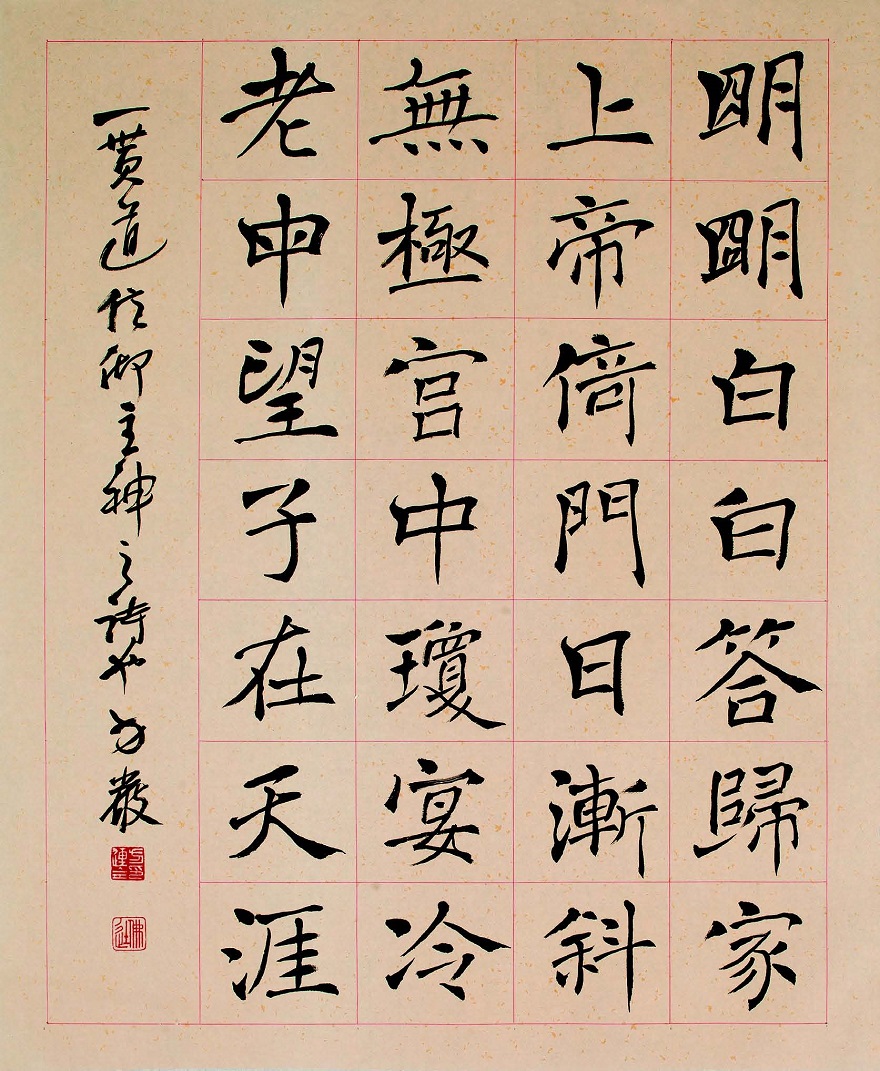 明明白白答歸家
上帝倚門日漸斜
無極宮中瓊宴冷
老母望子在天涯
一貫道信仰主神之詩也 嚴